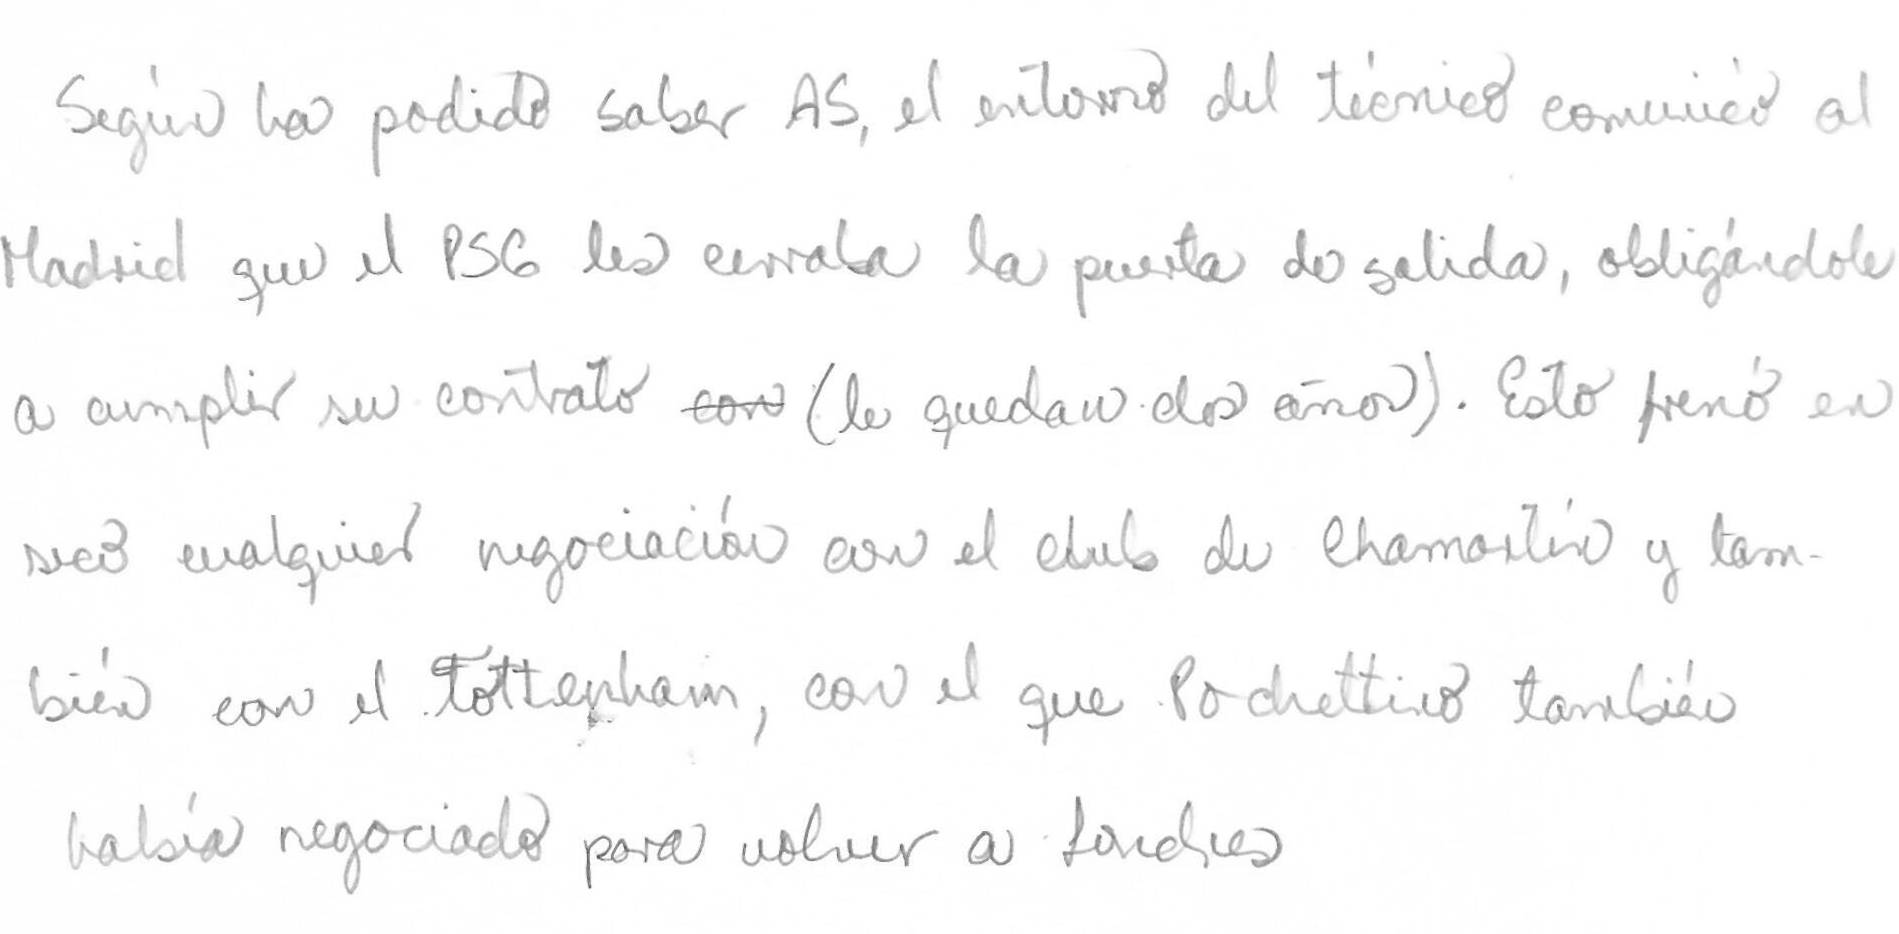 Según ha podido saber AS, el entorno del técnico comunicó al
Madrid que el PSG les cerraba la puerta de salida, obligándole
a cumplir su contrato con (le quedan dos años). Esto frenó en
seco cualquier negociación con el club de Chamartín y tam-
bién con el Tottenham, con el que Pochettino también
había negociado para volver a Londres